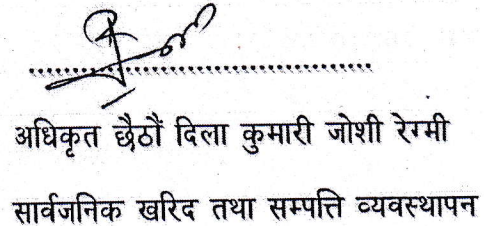 अधिकृत छैठौं दिला कुमारी जोशी रेग्मी
सार्वजनिक खरिद तथा सम्पत्ति व्यवस्थापन